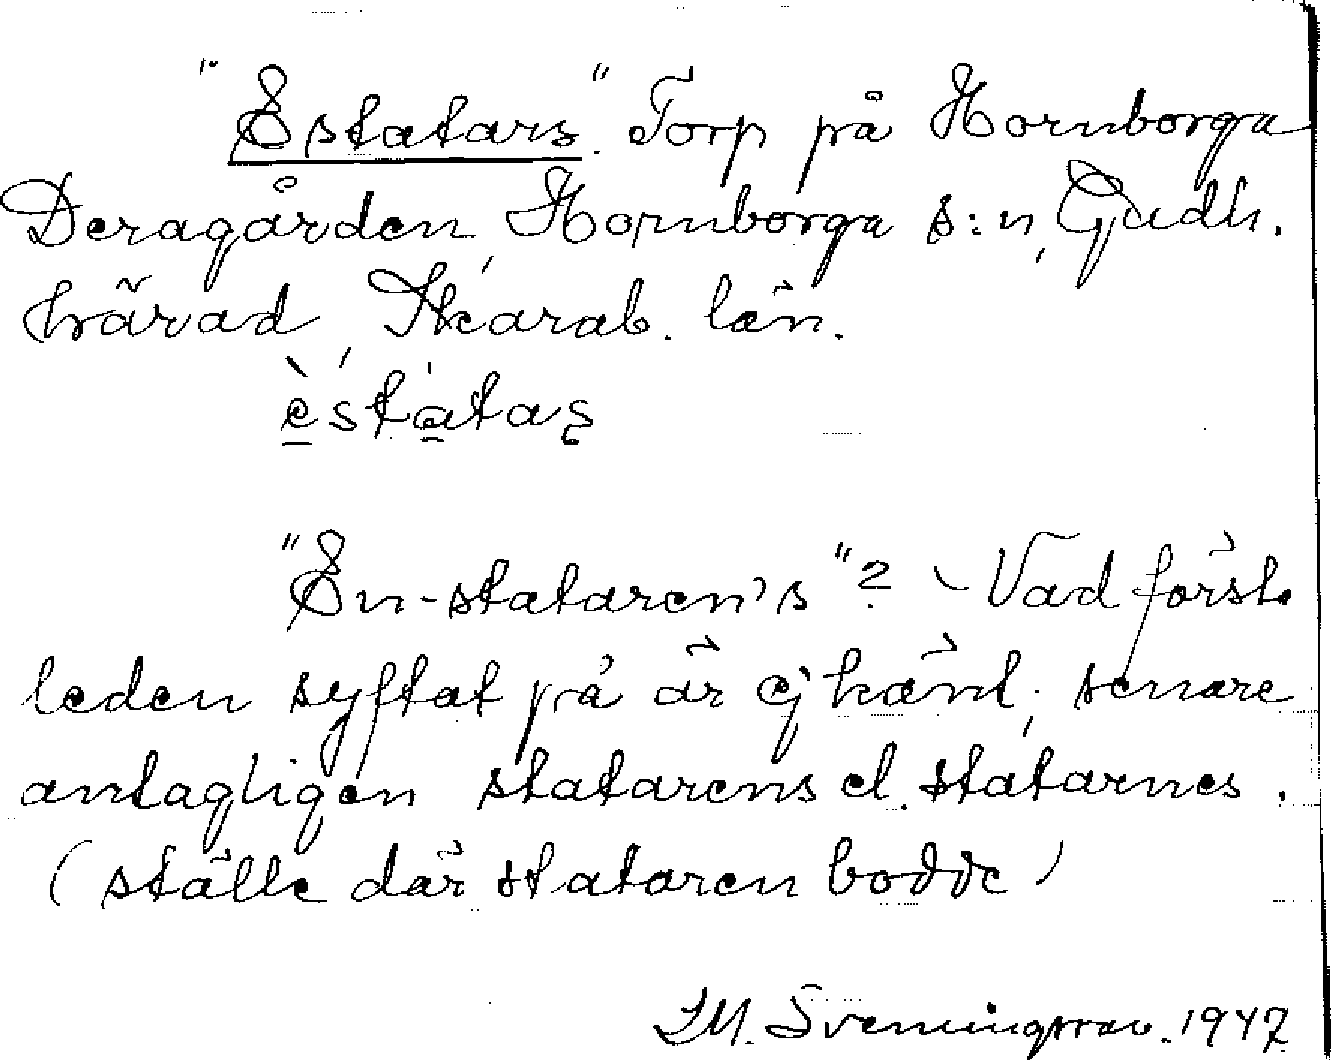 "Estatars". Torp på Hornborga
Deragården, Hornborga s:n, Gudh.
härad, Skarab. län.
èstátaş
"En-stataren's"? - Vad först
leden syftat på är ej känt, senare
antagligen statarens el. statarnes.
(ställe där stataren bodde)
I M. Svenningsson. 1947